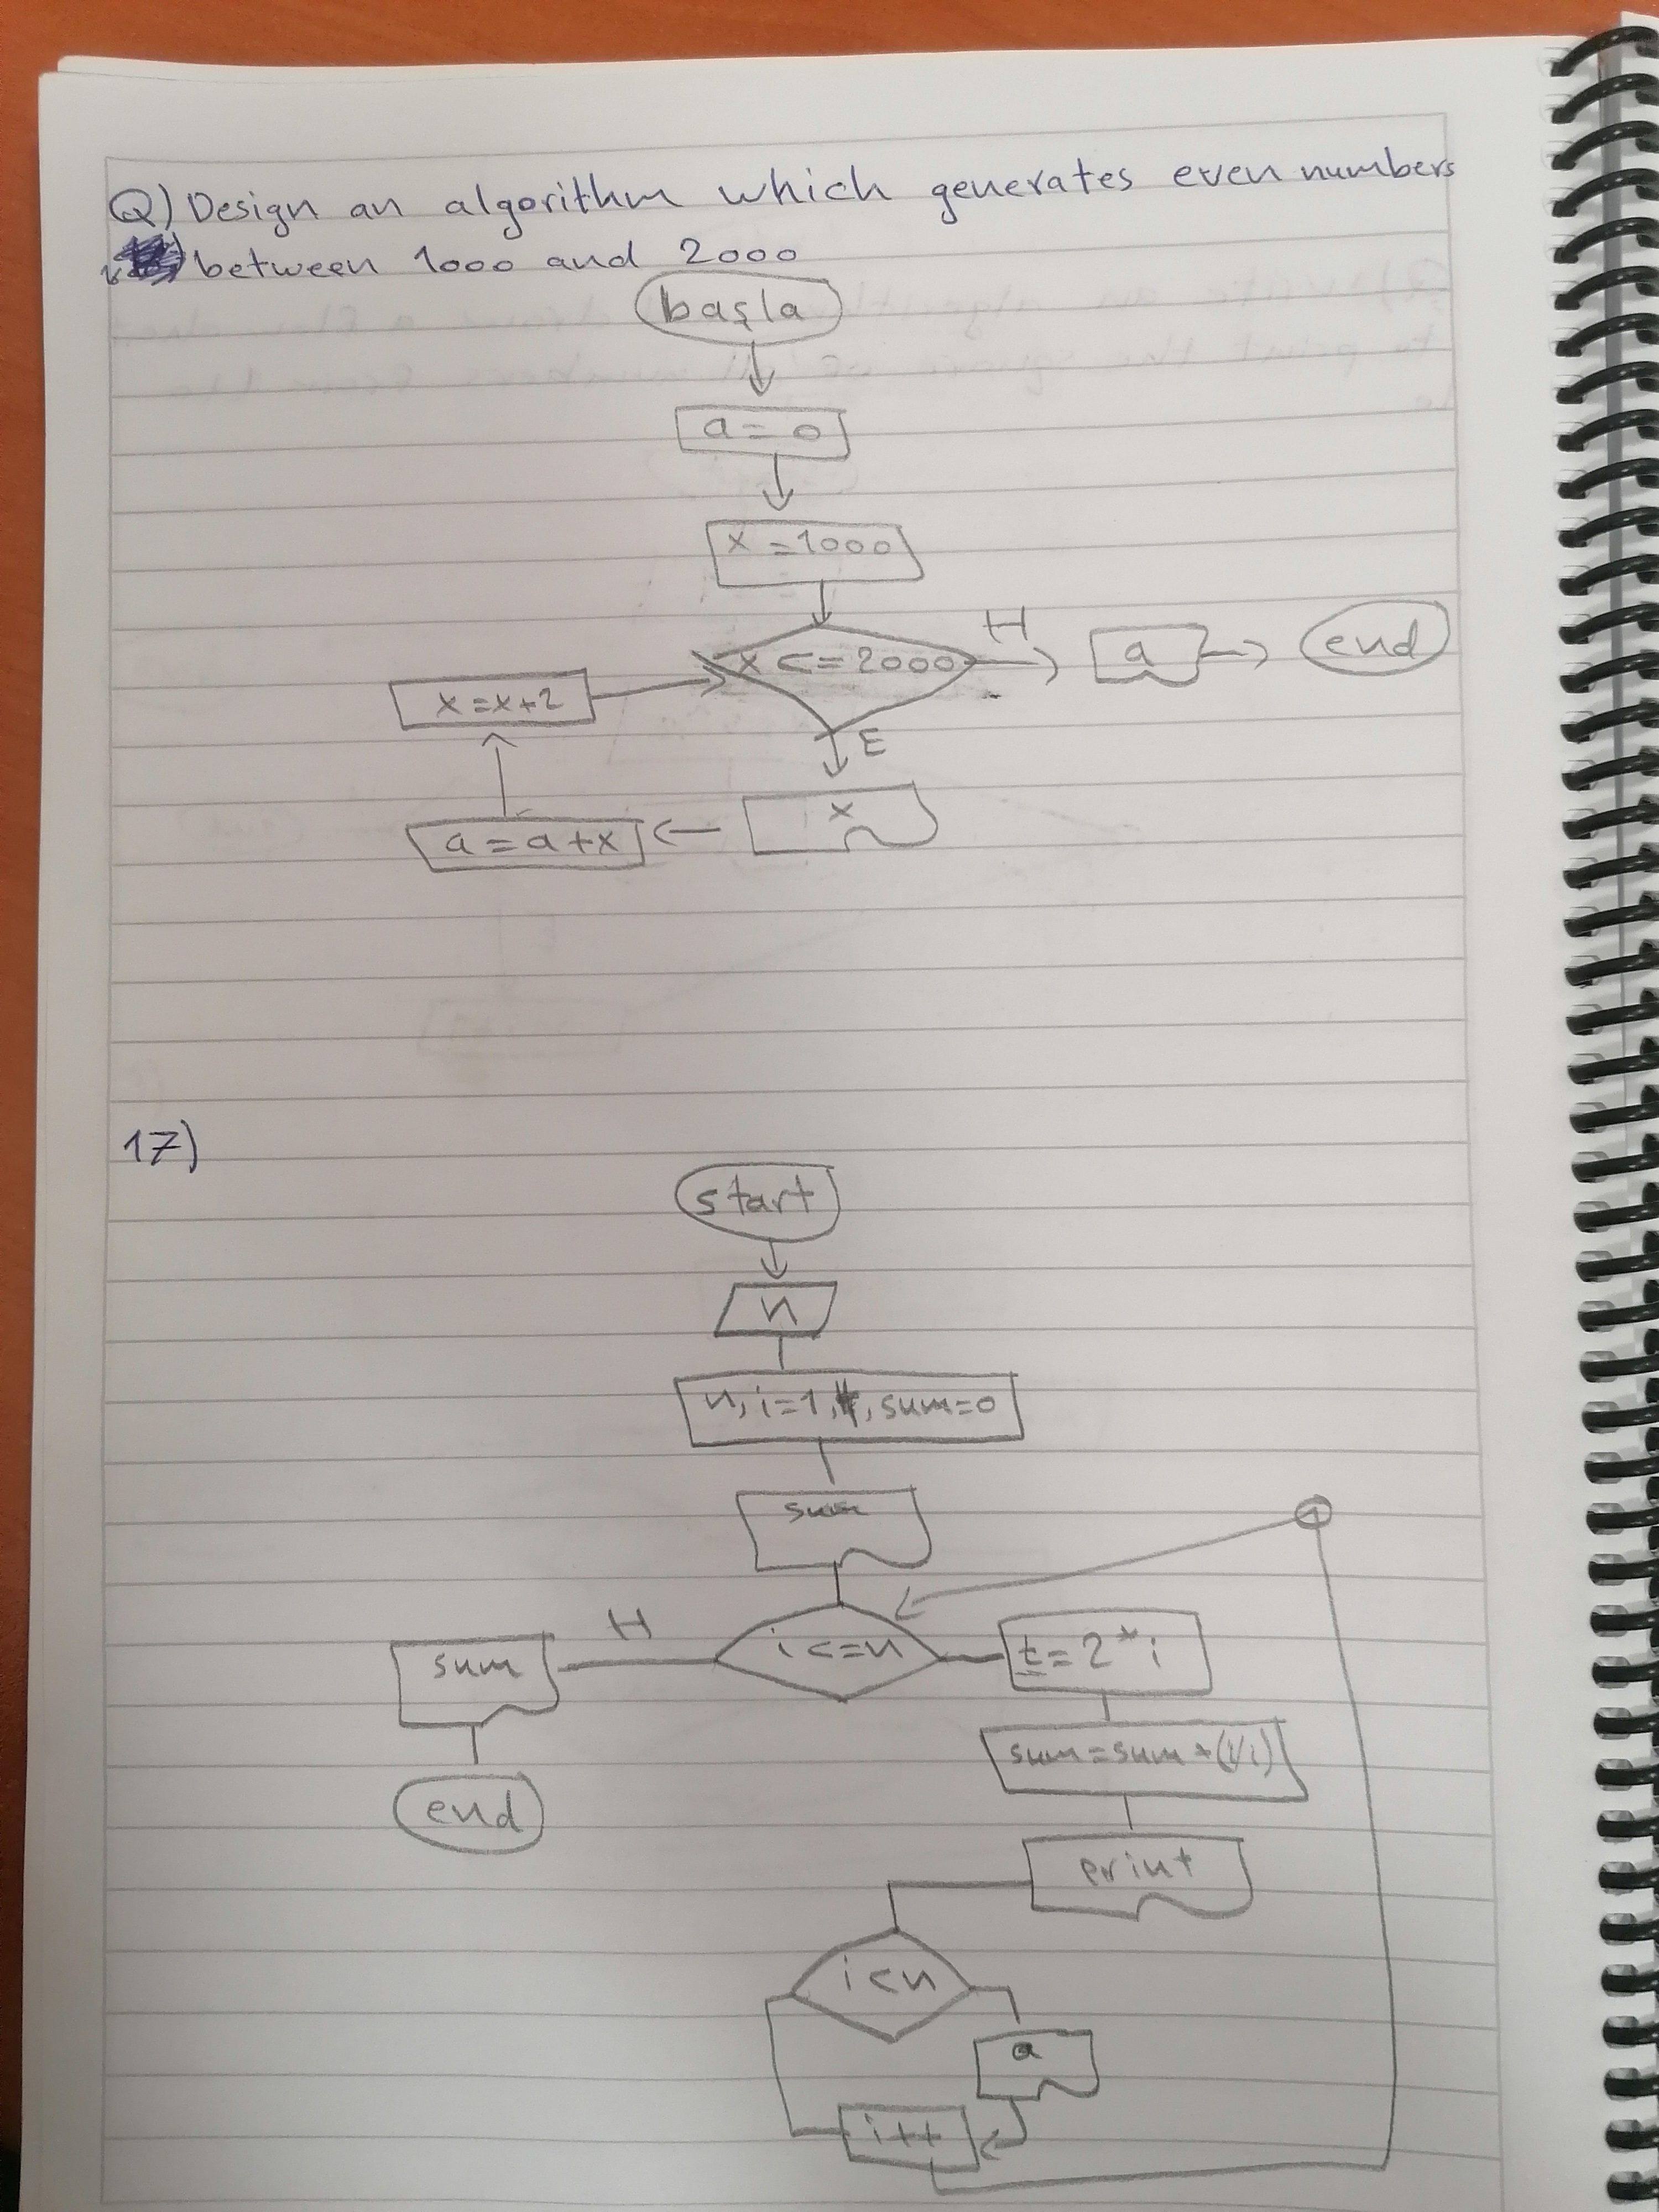 Q) Design an algorithm which generates even numbers
between 1000 and 2000
başla
a = 0
x = 1000
x <= 2000
H
a
end
E
x
a = a + x
x = x + 2
17)
start
n
n, i=1, , sum=0
sum
i <= n
H
sum
end
t = 2 * i
sum = sum + (1/i)
print
i < n
a
i++